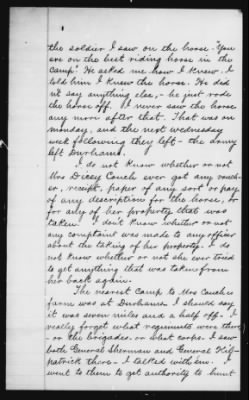 the soldier I saw on the horse. "You
are on the best riding horse in the
camp." He asked me how I knew. I
told him I knew the horse. He did
n't say anything else, - he just rode
the horse off. I never saw the horse
any more after that. That was on
Monday, and the next Wednesday
week following they left - the army
left Durhams.
I do not know whether or not
Mrs Dicey Couch ever got any vouch-
er, receipt, paper of any sort or pay
of any description for the horse, or
for any of her property that was
taken. I don't know whether or not
any complaint was made to any officer
about the taking of her property. I do
not know whether or not she ever tried
to get anything that was taken from
her back again.
The nearest camp to Mrs Couch's
farm was at Durhams. I should say
it was seven miles and a half off. I
really forget what regiments were there
- or the brigades, or what corps. I saw
both General Sherman and General Kil-
patrick there. I talked with em. I
went to them to get authority to hunt